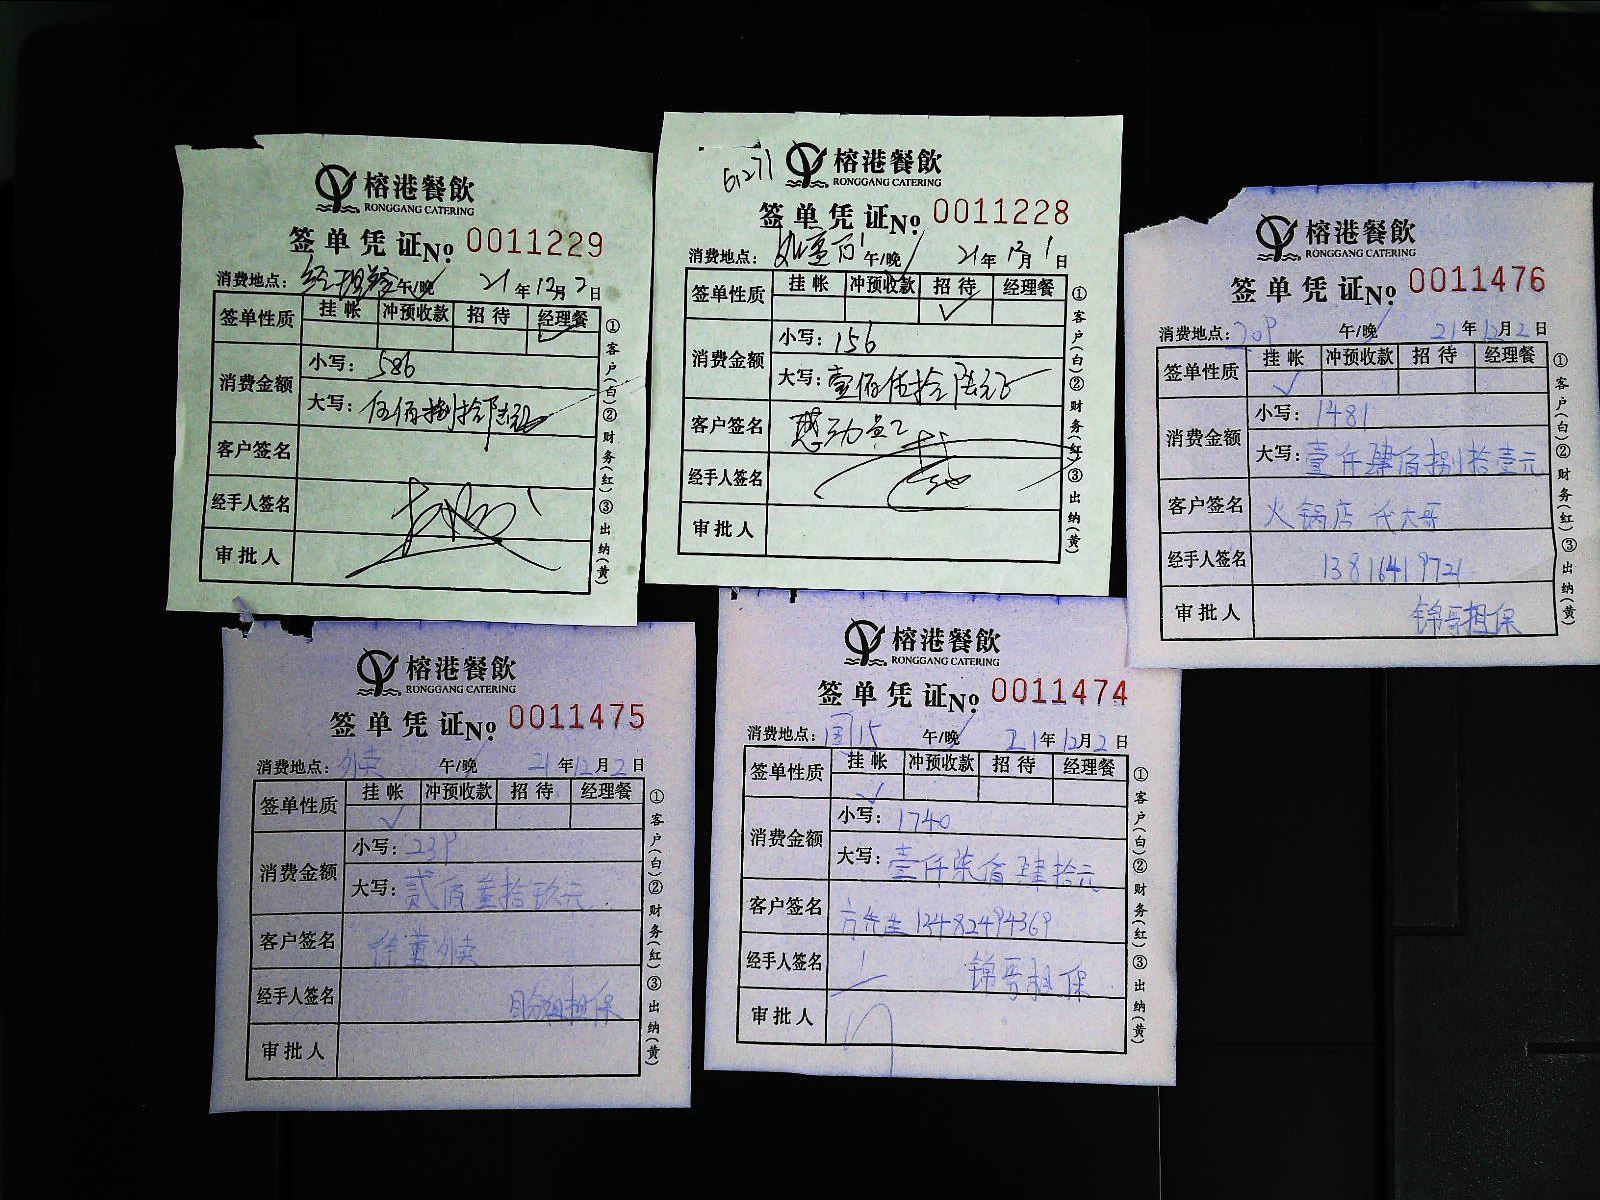 榕港餐飲
RONGGANG CATERING
签单凭证No. 0011229
消费地点：经理餐 午/晚 21年12月2日
签单性质 挂帐 冲预收款 招待 经理餐
消费金额 小写：586
大写：伍佰捌拾陆元
客户签名
经手人签名
审批人
①客户(白)②财务(红)③出纳(黄)
榕港餐飲
RONGGANG CATERING
签单凭证No. 0011228
消费地点： 午/晚 21年12月1日
签单性质 挂帐 冲预收款 招待 经理餐
消费金额 小写：156
大写：壹佰伍拾陆元
客户签名 感动员工
经手人签名
审批人
①客户(白)②财务(红)③出纳(黄)
榕港餐飲
RONGGANG CATERING
签单凭证No. 0011476
消费地点：709 午/晚 21年12月2日
签单性质 挂帐 冲预收款 招待 经理餐
消费金额 小写：1481
大写：壹仟肆佰捌拾壹元
客户签名 火锅店 大哥
经手人签名 13816419721
审批人 锦哥担保
①客户(白)②财务(红)③出纳(黄)
榕港餐飲
RONGGANG CATERING
签单凭证No. 0011475
消费地点：外卖 午/晚 21年12月2日
签单性质 挂帐 冲预收款 招待 经理餐
消费金额 小写：239
大写：贰佰叁拾玖元
客户签名 徐董外卖
经手人签名 担保
审批人
①客户(白)②财务(红)③出纳(黄)
榕港餐飲
RONGGANG CATERING
签单凭证No. 0011474
消费地点：国15 午/晚 21年12月2日
签单性质 挂帐 冲预收款 招待 经理餐
消费金额 小写：1740
大写：壹仟柒佰肆拾元
客户签名 方先生 13482494369
经手人签名 锦哥担保
审批人
①客户(白)②财务(红)③出纳(黄)